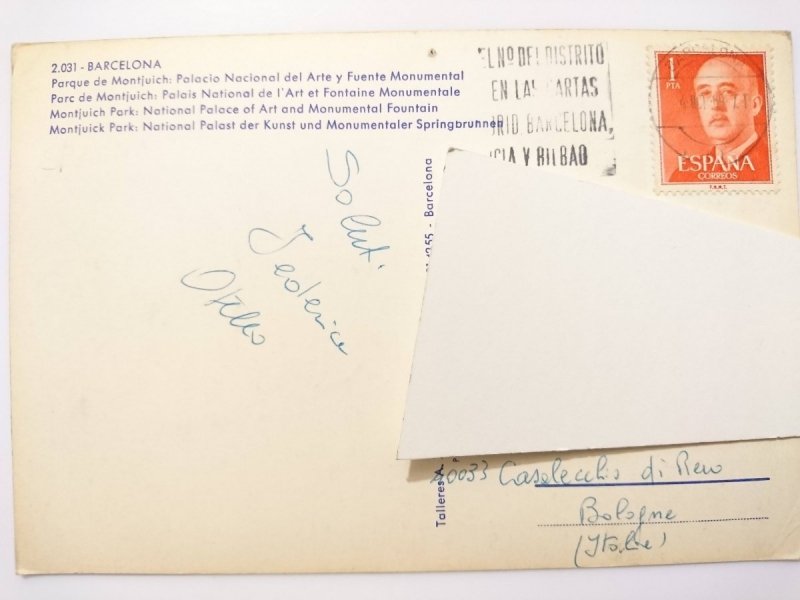 2.031 - BARCELONA
Parque de Montjuich: Palacio Nacional del Arte y Fuente Monumental
Parc de Montjuich: Palais National de l'Art et Fontaine Monumentale
Montjuich Park: National Palace of Art and Monumental Fountain
Montjuick Park: National Palast der Kunst und Monumentaler Springbrunnen
EL Nº DEL DISTRITO
EN LAS CARTAS
RID BARCELONA,
CIA Y BILBAO
1
PTA
ESPAÑA
CORREOS
F.N.M.T.
Saluti
Federica
Otello
Barcelona
Talleres A.
40033 Casalecchio di Reno
Bologna
(Italia)